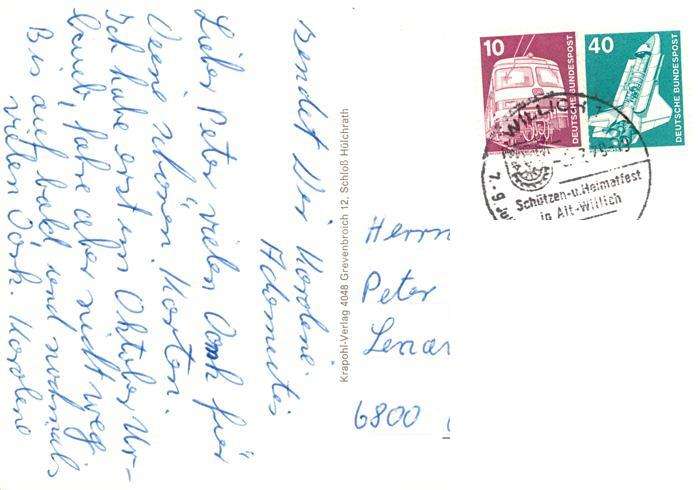 Lieber Peter vielen Dank für
Deine schönen Karten.
Ich habe erst im Oktober Ur-
laub, fahre aber nicht weg
Bis auf bald und nochmals
vielen Dank. Marlene
sendet Dir Marlene
Krapohl-Verlag 4048 Grevenbroich 12, Schloß Hülchrath
Herrn
Peter
6800
10
DEUTSCHE BUNDESPOST
40
DEUTSCHE BUNDESPOST
WILLICH 1
Schützen-u.Heimatfest
in Alt-Willich